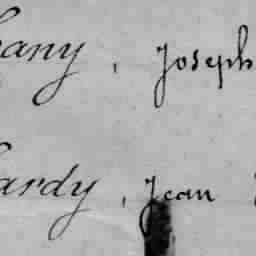 any, Joseph
ardy, Jean